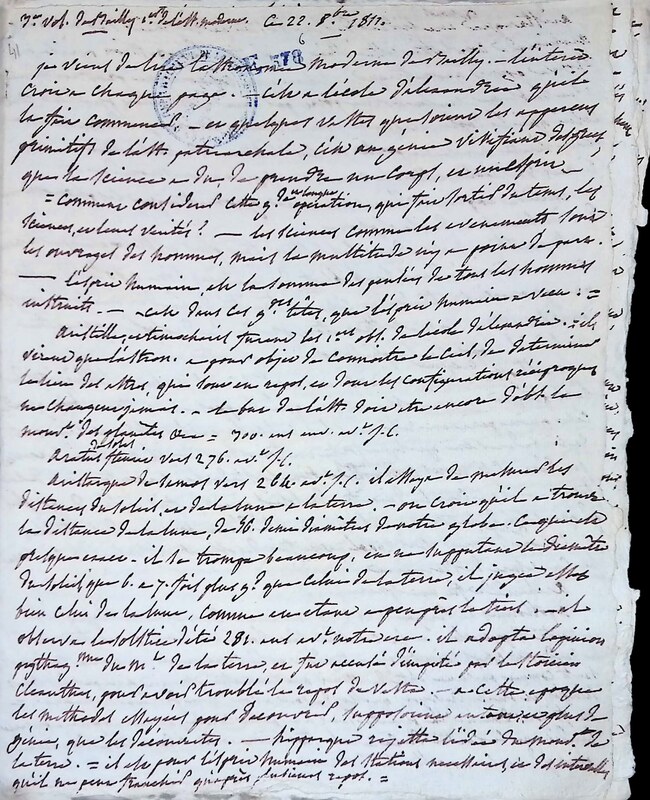 3me vol. de Bailly, de l'ast. moderne. Ce 22. 8bre 1811.
41
6
E 578
je viens de lire l'astronomie moderne de Bailly. — l'intérêt
croit a chaque page. — c'est a l'école d'alexandrie qu'il
la fait commencer — et quelques vastes que soient les apperçus
primitifs de l'ast. patriarchale, c'est au génie des grecs
que la science a du, de prendre un corps, et un esprit. —
= comment considérer cette gde et longue opération, qui fait sortir du tems, les
sciences, et leurs vérités? — les sciences comme les evenements sont
les ouvrages des hommes, mais la multitude n'y a point de part.
— l'esprit humain, est la somme des pensées de tous les hommes
instruits. — c'est dans ces gdes têtes, que l'esprit humain a vecu. =
Aristille, et timocharis furent les 1ers obs. de l'école d'alexandrie. = ils
virent que l'astron. a pour objet de connoitre le ciel, de determiner
le lieu des astres, qui sont en repos, et dont les configurations réciproques
ne changent jamais. — le but de l'ast. doit etre encore d'obs. le
mouvt. des planetes = 300. ans env. avt. J.C.
Aratus de soles vers 276. avt. J.C.
Aristarque de Samos vers 264. avt. J.C. il essaya de mesurer les
distances du soleil, et de la lune a la terre. — on croit qu'il a trouvé
la distance de la lune, de 56. demi diametres de notre globe. ce qui est
presque exact. — il se trompa beaucoup, en ne supputant le diametre
du soleil, que 6. a 7. fois plus gd. que celui de la terre, il jugea assez
bien celui de la lune, comme en etant a peu près le tiers. — il
observa le solstice d'été 281. ans avt. notre ere. il adopta l'opinion
pythag.me du mt. de la terre, et fut accusé d'impiété par le stoicien
Cleanthes, pour avoir troublé le repos de Vesta. — a cette epoque
les methodes essayées pour découvrir, supposoient plus de
génie, que les découvertes. — hipparque rejetta l'idée du mouvt. de
la terre. = il est pour l'esprit humain des stations necessaires, et des intervalles
qu'il ne peut franchir qu'après plusieurs repos. =